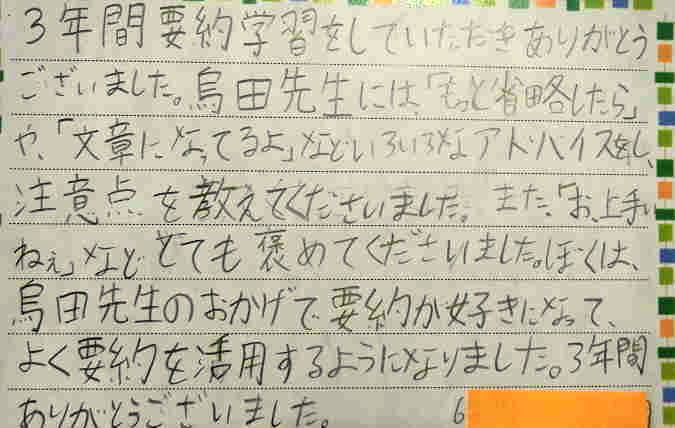 3年間要約学習をしていただきありがとう
ございました。鳥田先生には、「もっと省略したら」
や、「文章になってるよ」などいろいろなアドバイスをし、
注意点を教えてくださいました。また、「お、上手い
ねぇ」などとても褒めてくださいました。ぼくは、
鳥田先生のおかげで要約が好きになって、
よく要約を活用するようになりました。3年間
ありがとうございました。 6